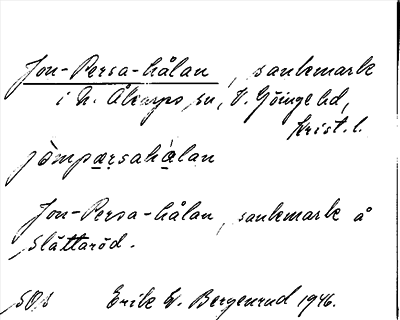 Jon-Persa-hålan, sankmark
i N. Åkarps sn, V. Göinge hd,
Krist. l.
jòmpæṣahàlan
Jon-Persa-hålan, sankmark å
Slättaröd.
sOs Erik W. Bergenrud 1946.